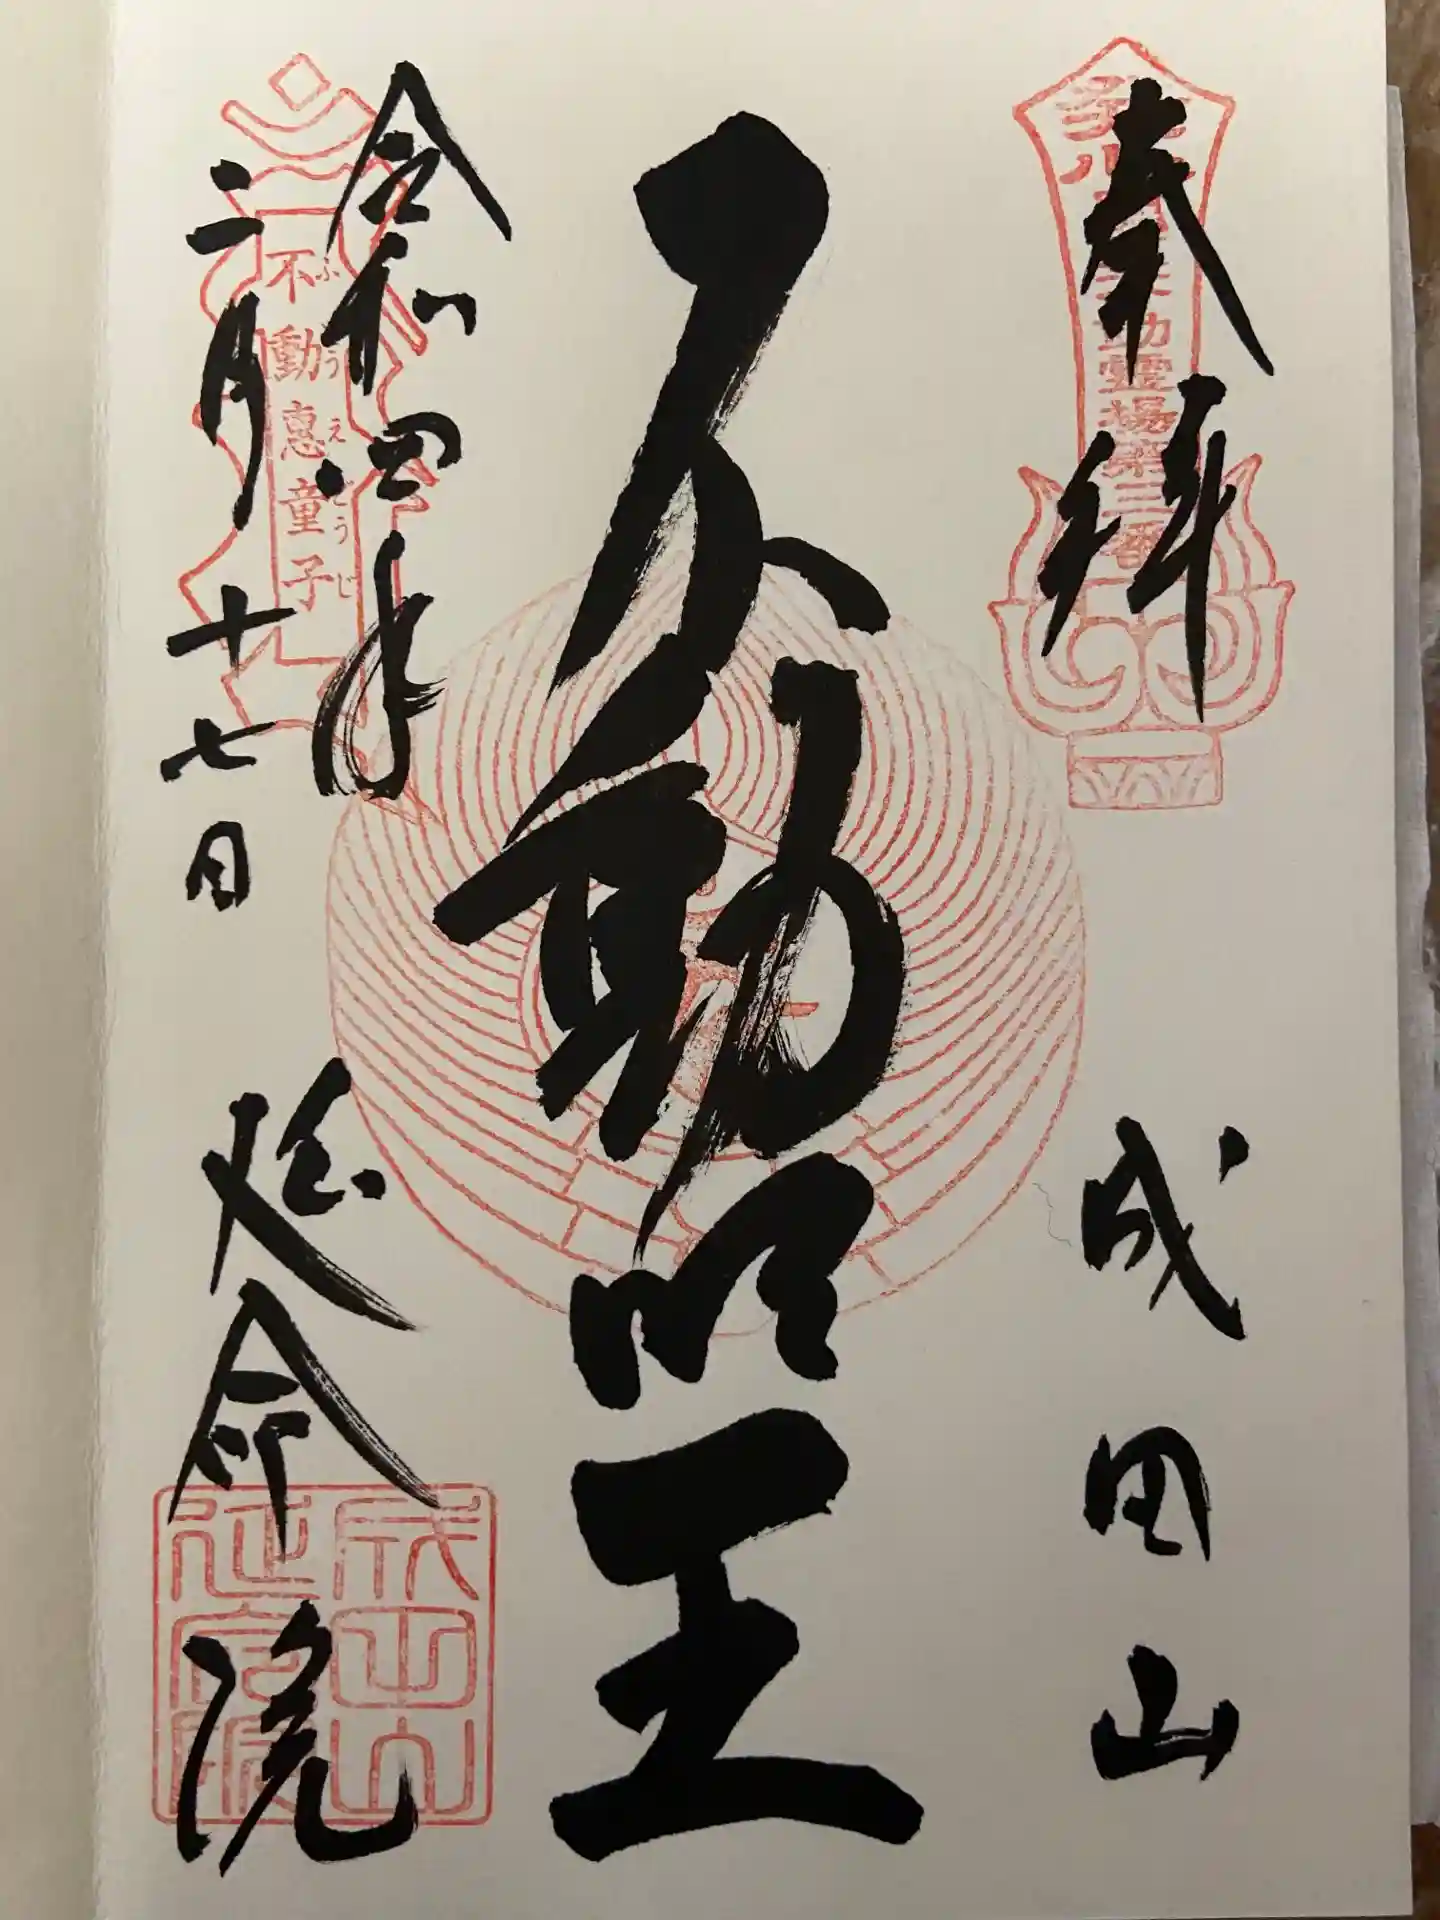 奉拝
成田山
不動明王
令和四年
二月十七日
延命院
不動恵童子
ふどうえどうじ
成田山
延命院